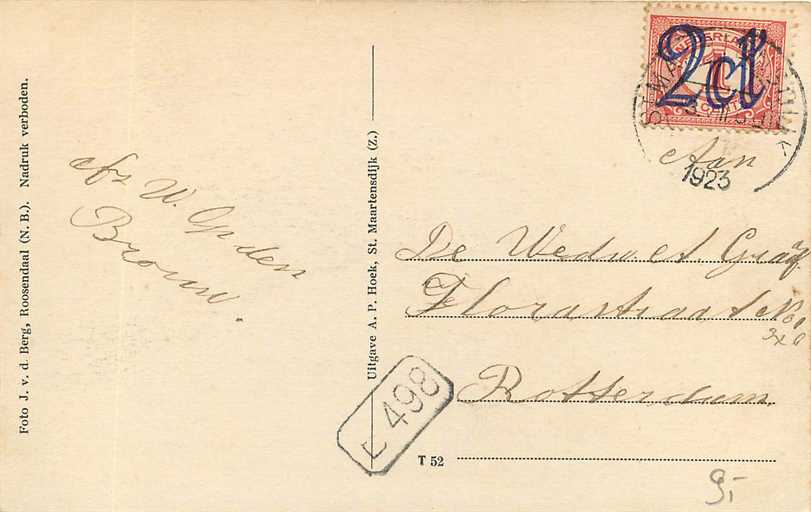 Foto J. v. d. Berg, Roosendaal (N. B.). Nadruk verboden.
Afs W. Op den
Brouw.
Uitgave A. P. Hoek, St. Maartensdijk (Z.)
NEDERLAND
2 ct
1923
Aan
De Wedw. A Graaf
Florastraat No
Rotterdam
L 498
T 52